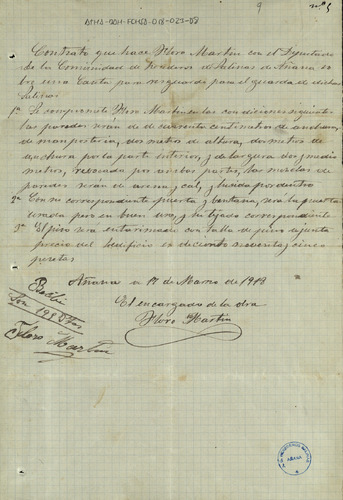 9
nº 5
ATHA-DAH-FCHCB-018-023-08
Contrato que hace Floro Martin con el Diputado
de la Comunidad de Herederos de Salinas de Añana so
bre una Caseta para resguardo para el guarda de dichas
Salinas
1ª Se compromete Floro Martin en las condiciones siguientes
las paredes serán de cuarenta centimetros de anchura
de manposteria, dos metros de altura, dos metros de
anchura por la parte interior, y de largura dos y medio
metros, revocada por ambas partes, las mezclas de
paredes serán de arena y cal, y lucida por dentro
2ª Con su correspondiente puerta y ventana, será la puerta
usada pero en buen uso, y su tejado correspondiente
3ª El piso será entarimado con tabla de pino ajunta
precio del hedificio es de ciento noventa y cinco
pesetas
Añana a 17 de Marzo de 1918
El encargado de la obra
Floro Martin
Recibi
Son 195 Ptas
Floro Martin
AÑANA